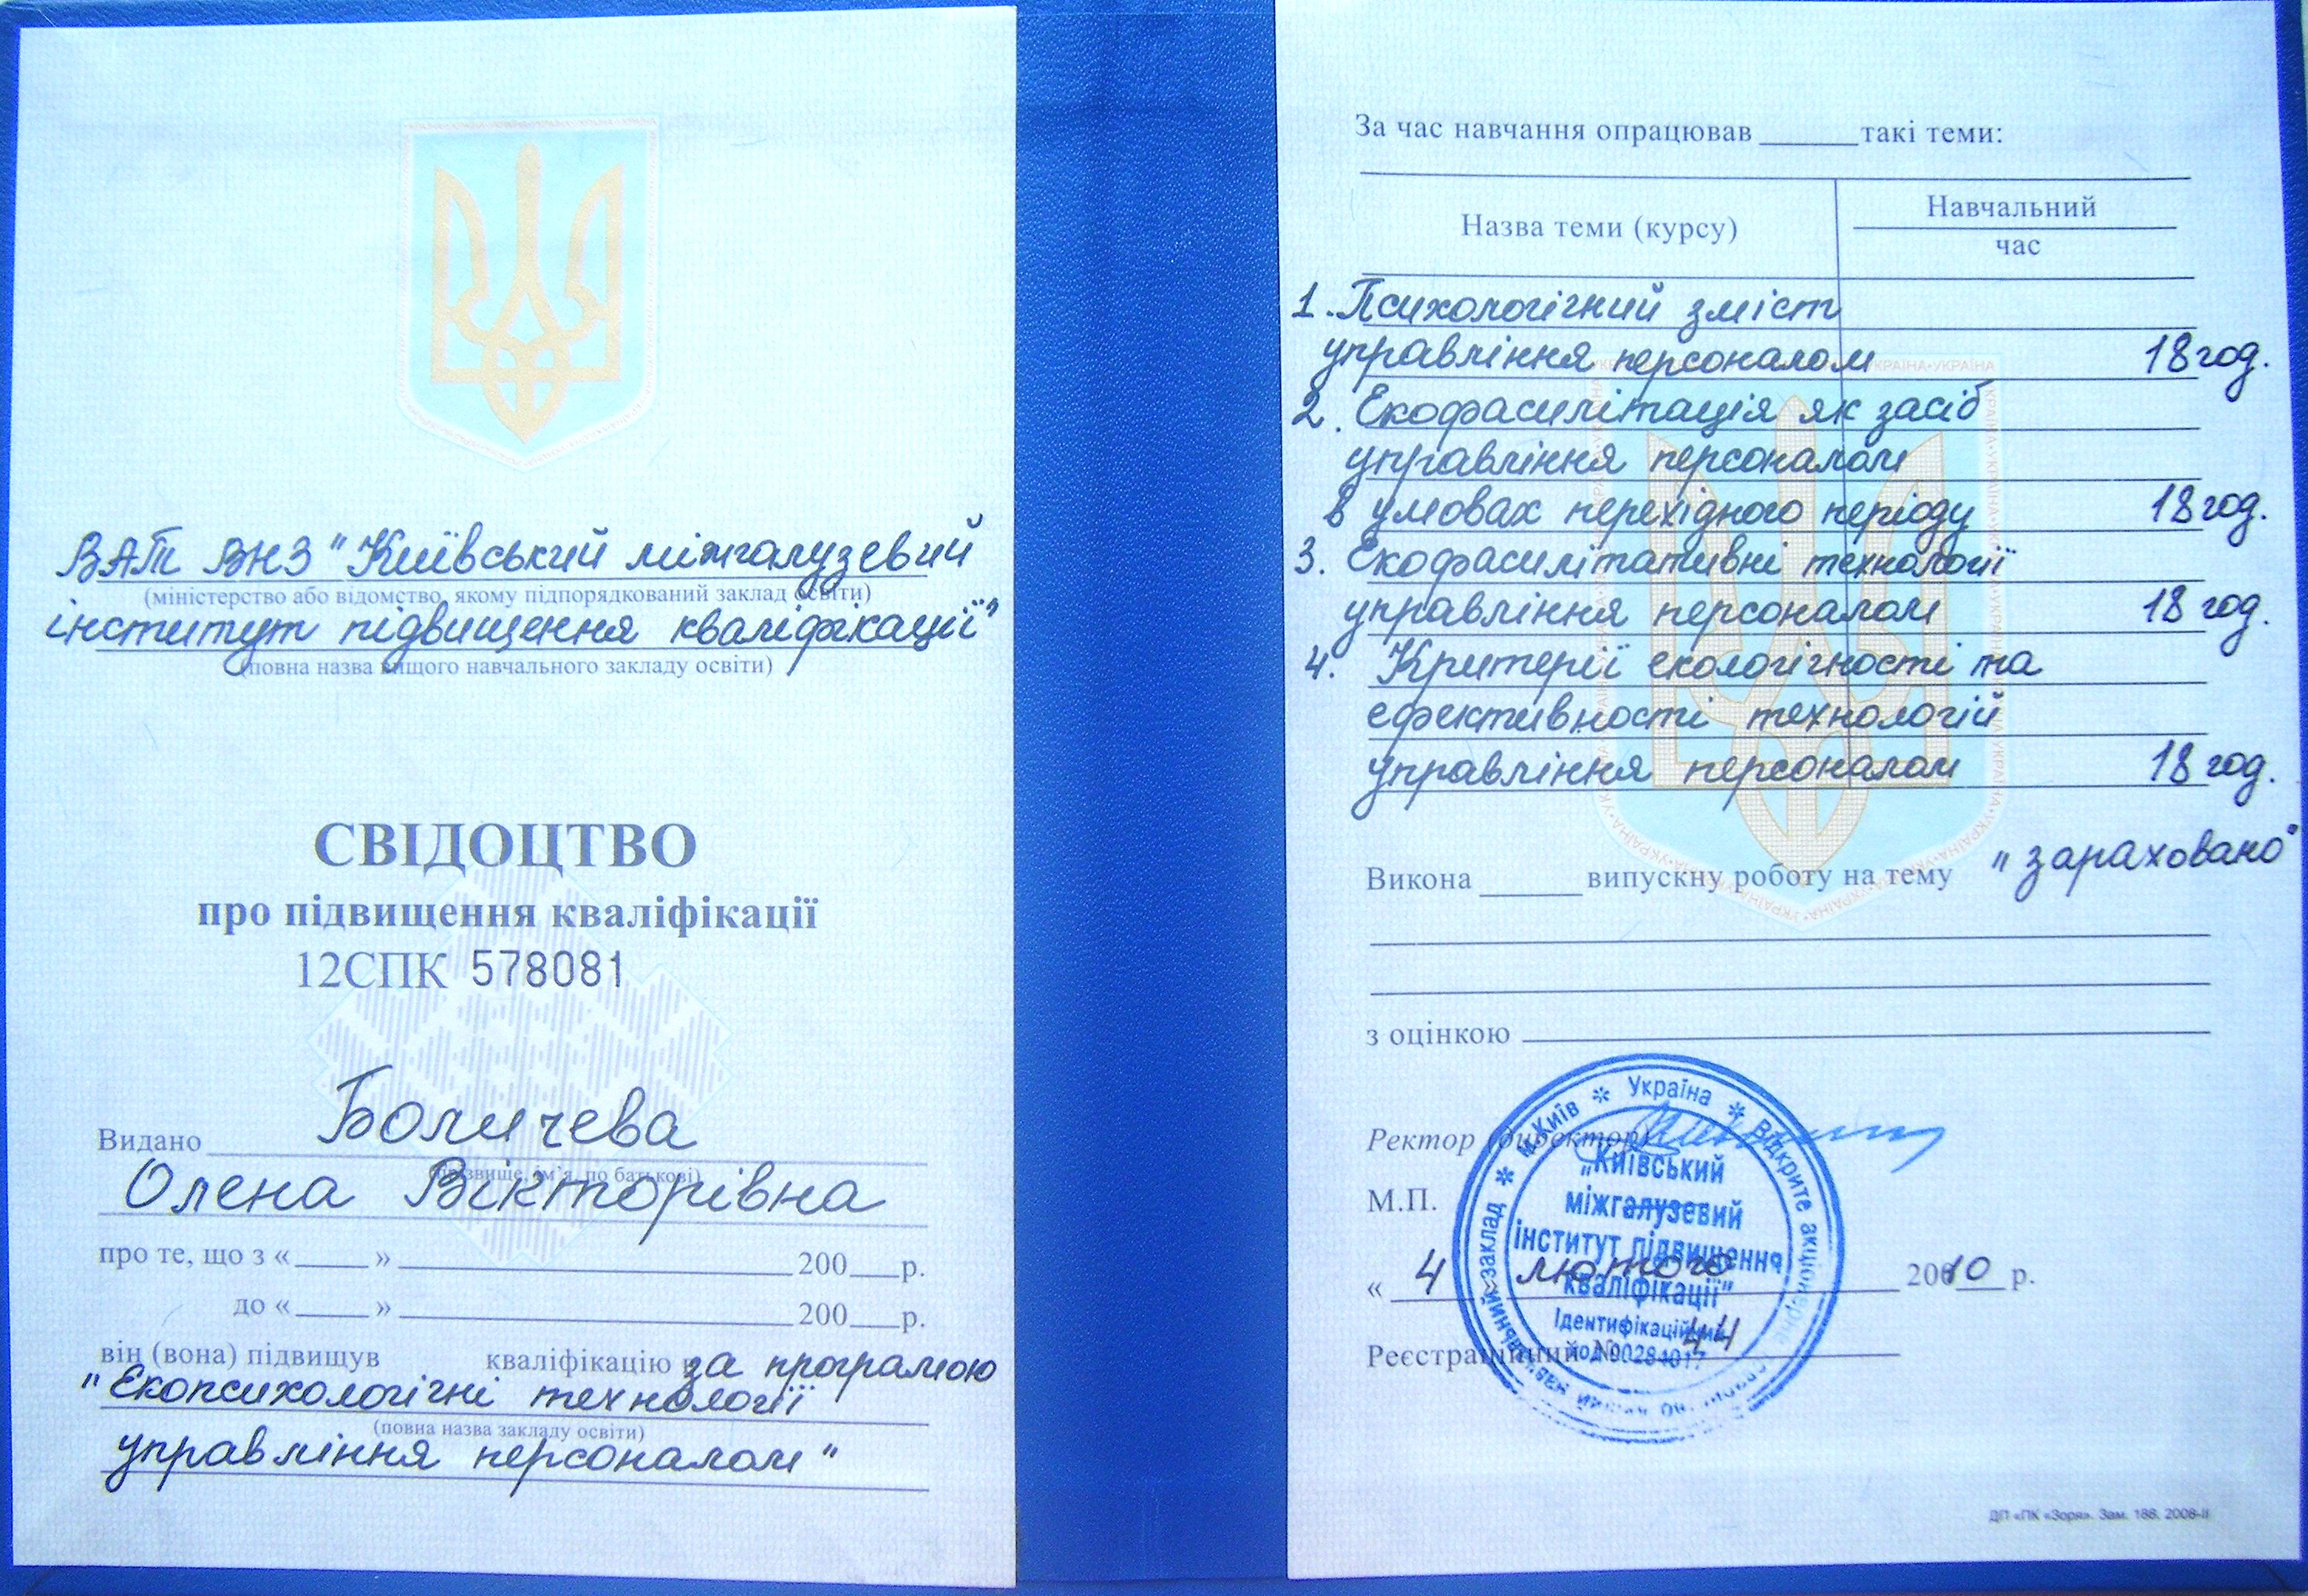 ВАТ ВНЗ "Київський міжгалузевий
(міністерство або відомство, якому підпорядкований заклад освіти)
інститут підвищення кваліфікації"
(повна назва вищого навчального закладу освіти)
СВІДОЦТВО
про підвищення кваліфікації
12СПК 578081
Видано Боличева
(прізвище, ім'я, по батькові)
Олена Вікторівна
про те, що з « » 200 р.
до « » 200 р.
він (вона) підвищув кваліфікацію за програмою
"Екопсихологічні технології
(повна назва закладу освіти)
управління персоналом"
За час навчання опрацював такі теми:
Назва теми (курсу)
Навчальний
час
1. Психологічний зміст
управління персоналом 18 год.
2. Екофасилітація як засіб
управління персоналом
в умовах перехідного періоду 18 год.
3. Екофасилітативні технології
управління персоналом 18 год.
4. Критерії екологічності та
ефективності технологій
управління персоналом 18 год.
Викона випускну роботу на тему "зараховано"
з оцінкою
Ректор (директор)
М.П.
« 4 лютого 2010 р.
Реєстраційний № 44
м.Київ * Україна * Відкрите акціонерне
навчальний заклад
"Київський
міжгалузевий
інститут підвищення
кваліфікації"
Ідентифікаційний
код 00284017
ДП «ПК «Зоря». Зам. 188. 2008-II